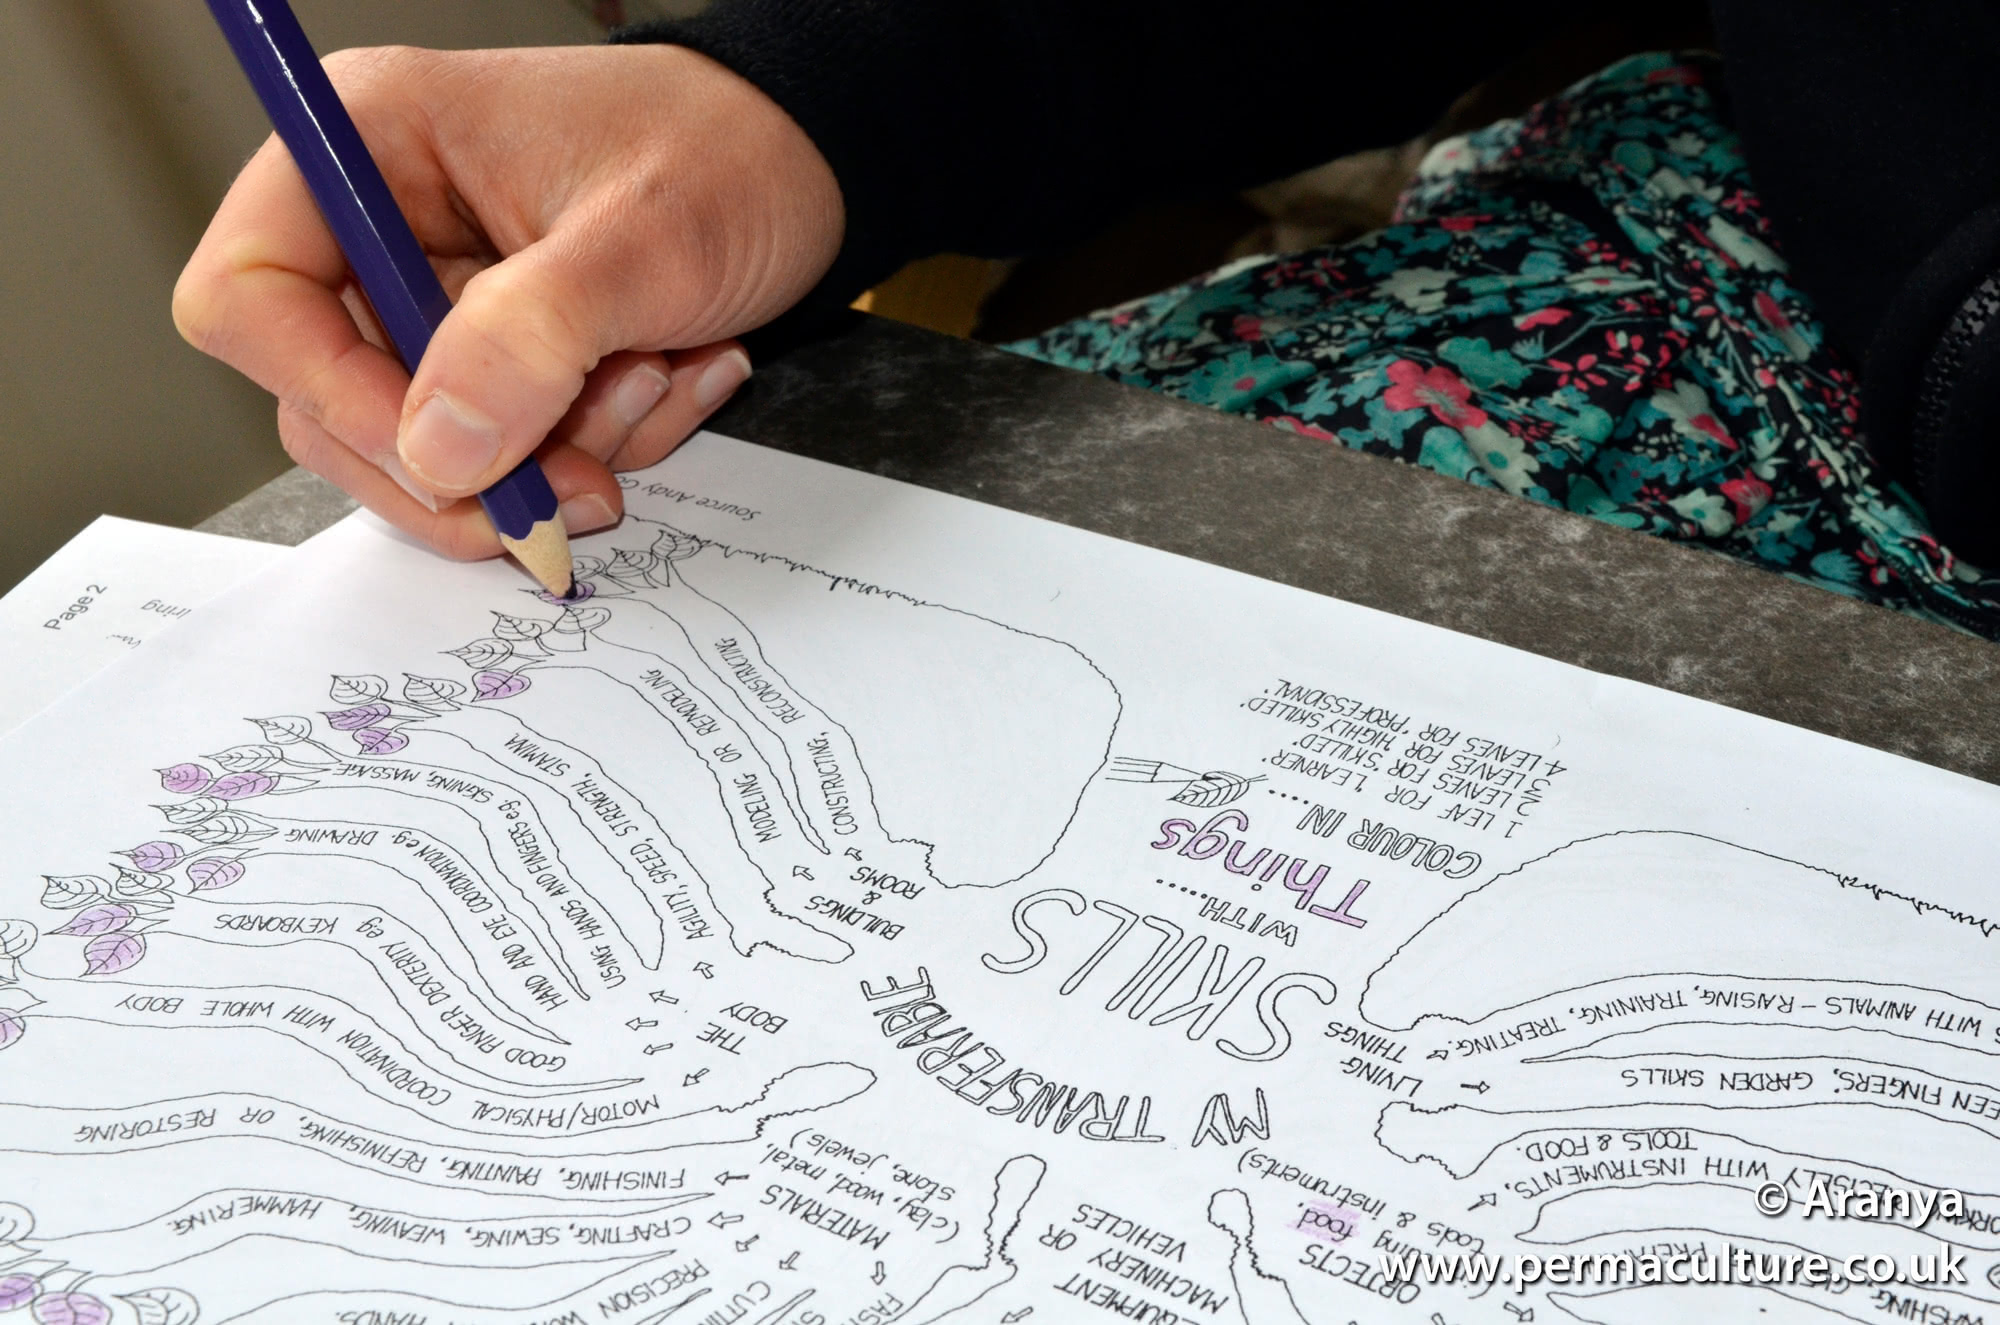 Page 2
Source Andy
MY TRANSFERABLE
SKILLS
WITH.....
Things
COLOUR IN.....
1 LEAF FOR 'LEARNER'
2 LEAVES FOR 'SKILLED'
3 LEAVES FOR 'HIGHLY SKILLED'
4 LEAVES FOR 'PROFESSIONAL'
BUILDINGS
&
ROOMS
CONSTRUCTING, RECONSTRUCTING
MODELING OR REMODELING
THE
BODY
AGILITY, SPEED, STRENGTH, STAMINA
USING HANDS AND FINGERS eg. SIGNING, MASSAGE
HAND AND EYE COORDINATION e.g. DRAWING
GOOD FINGER DEXTERITY eg KEYBOARDS
MOTOR/PHYSICAL COORDINATION WITH WHOLE BODY
MATERIALS
(clay, wood, metal,
stone, jewels)
FINISHING, PAINTING, REFINISHING, OR RESTORING
CRAFTING, SEWING, WEAVING, HAMMERING.
PRECISION
HANDS.
EQUIPMENT
MACHINERY OR
VEHICLES
OBJECTS
food,
tools & instruments)
LIVING
THINGS
WITH ANIMALS - RAISING, TRAINING, TREATING.
FINGERS', GARDEN SKILLS
WITH INSTRUMENTS,
TOOLS & FOOD.
© Aranya
www.permaculture.co.uk